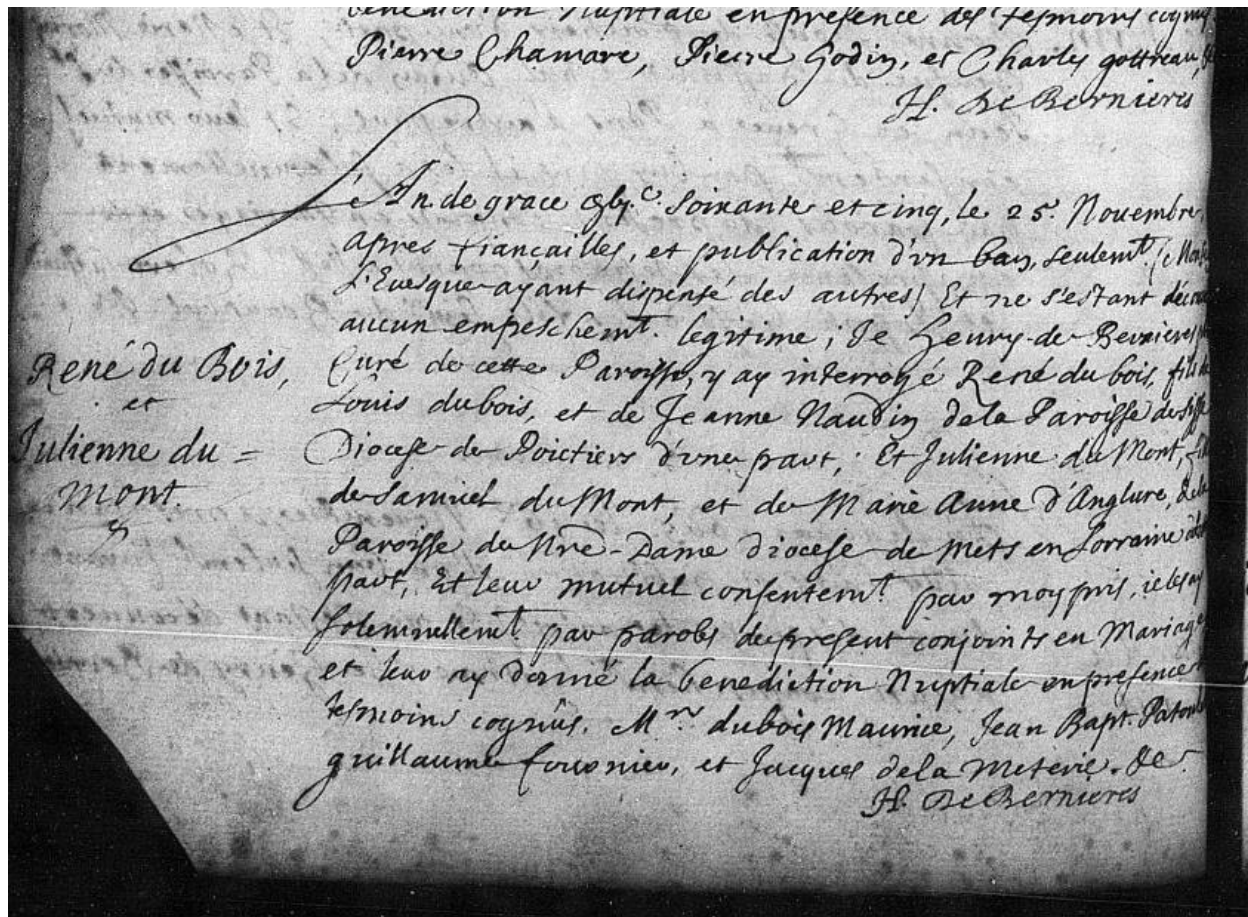 benediction Nuptiale en presence des tesmoins cognus
Pierre Chamare, Pierre Godin, et Charles gottreau,
H. De Bernieres
L'An de grace xbj.c soixante et cinq, le 25. Novembre,
apres fiançailles, et publication d'vn ban, seulemt. (Mons.
L'Euesque ayant dispensé des autres) Et ne s'estant décou
aucun empeschemt. legitime; Je Henry de Bernieres
Curé de cette Paroisse, y ay interrogé René du bois, fils de
René du Bois,
Louis dubois, et de Jeanne Naudin de la Paroisse de
et
Diocese de Poictiers d'vne part; Et Julienne du Mont, fille
Julienne du =
de Samuel du Mont, et de Marie Anne d'Anglure, de la
Mont.
Paroisse de Nre-Dame diocese de Mets en Lorraine
part, Et leur mutuel consentemt. par moy pris, ie les ay
solemnellemt. par paroles de present conjoints en Mariage
et leur ay donné la benediction Nuptiale en presence
tesmoins cognûs. Mrs. dubois Maurice, Jean Bapt. Patoul
guillaume fournier, et Jacques de la Meterie. &c.
H. De Bernieres